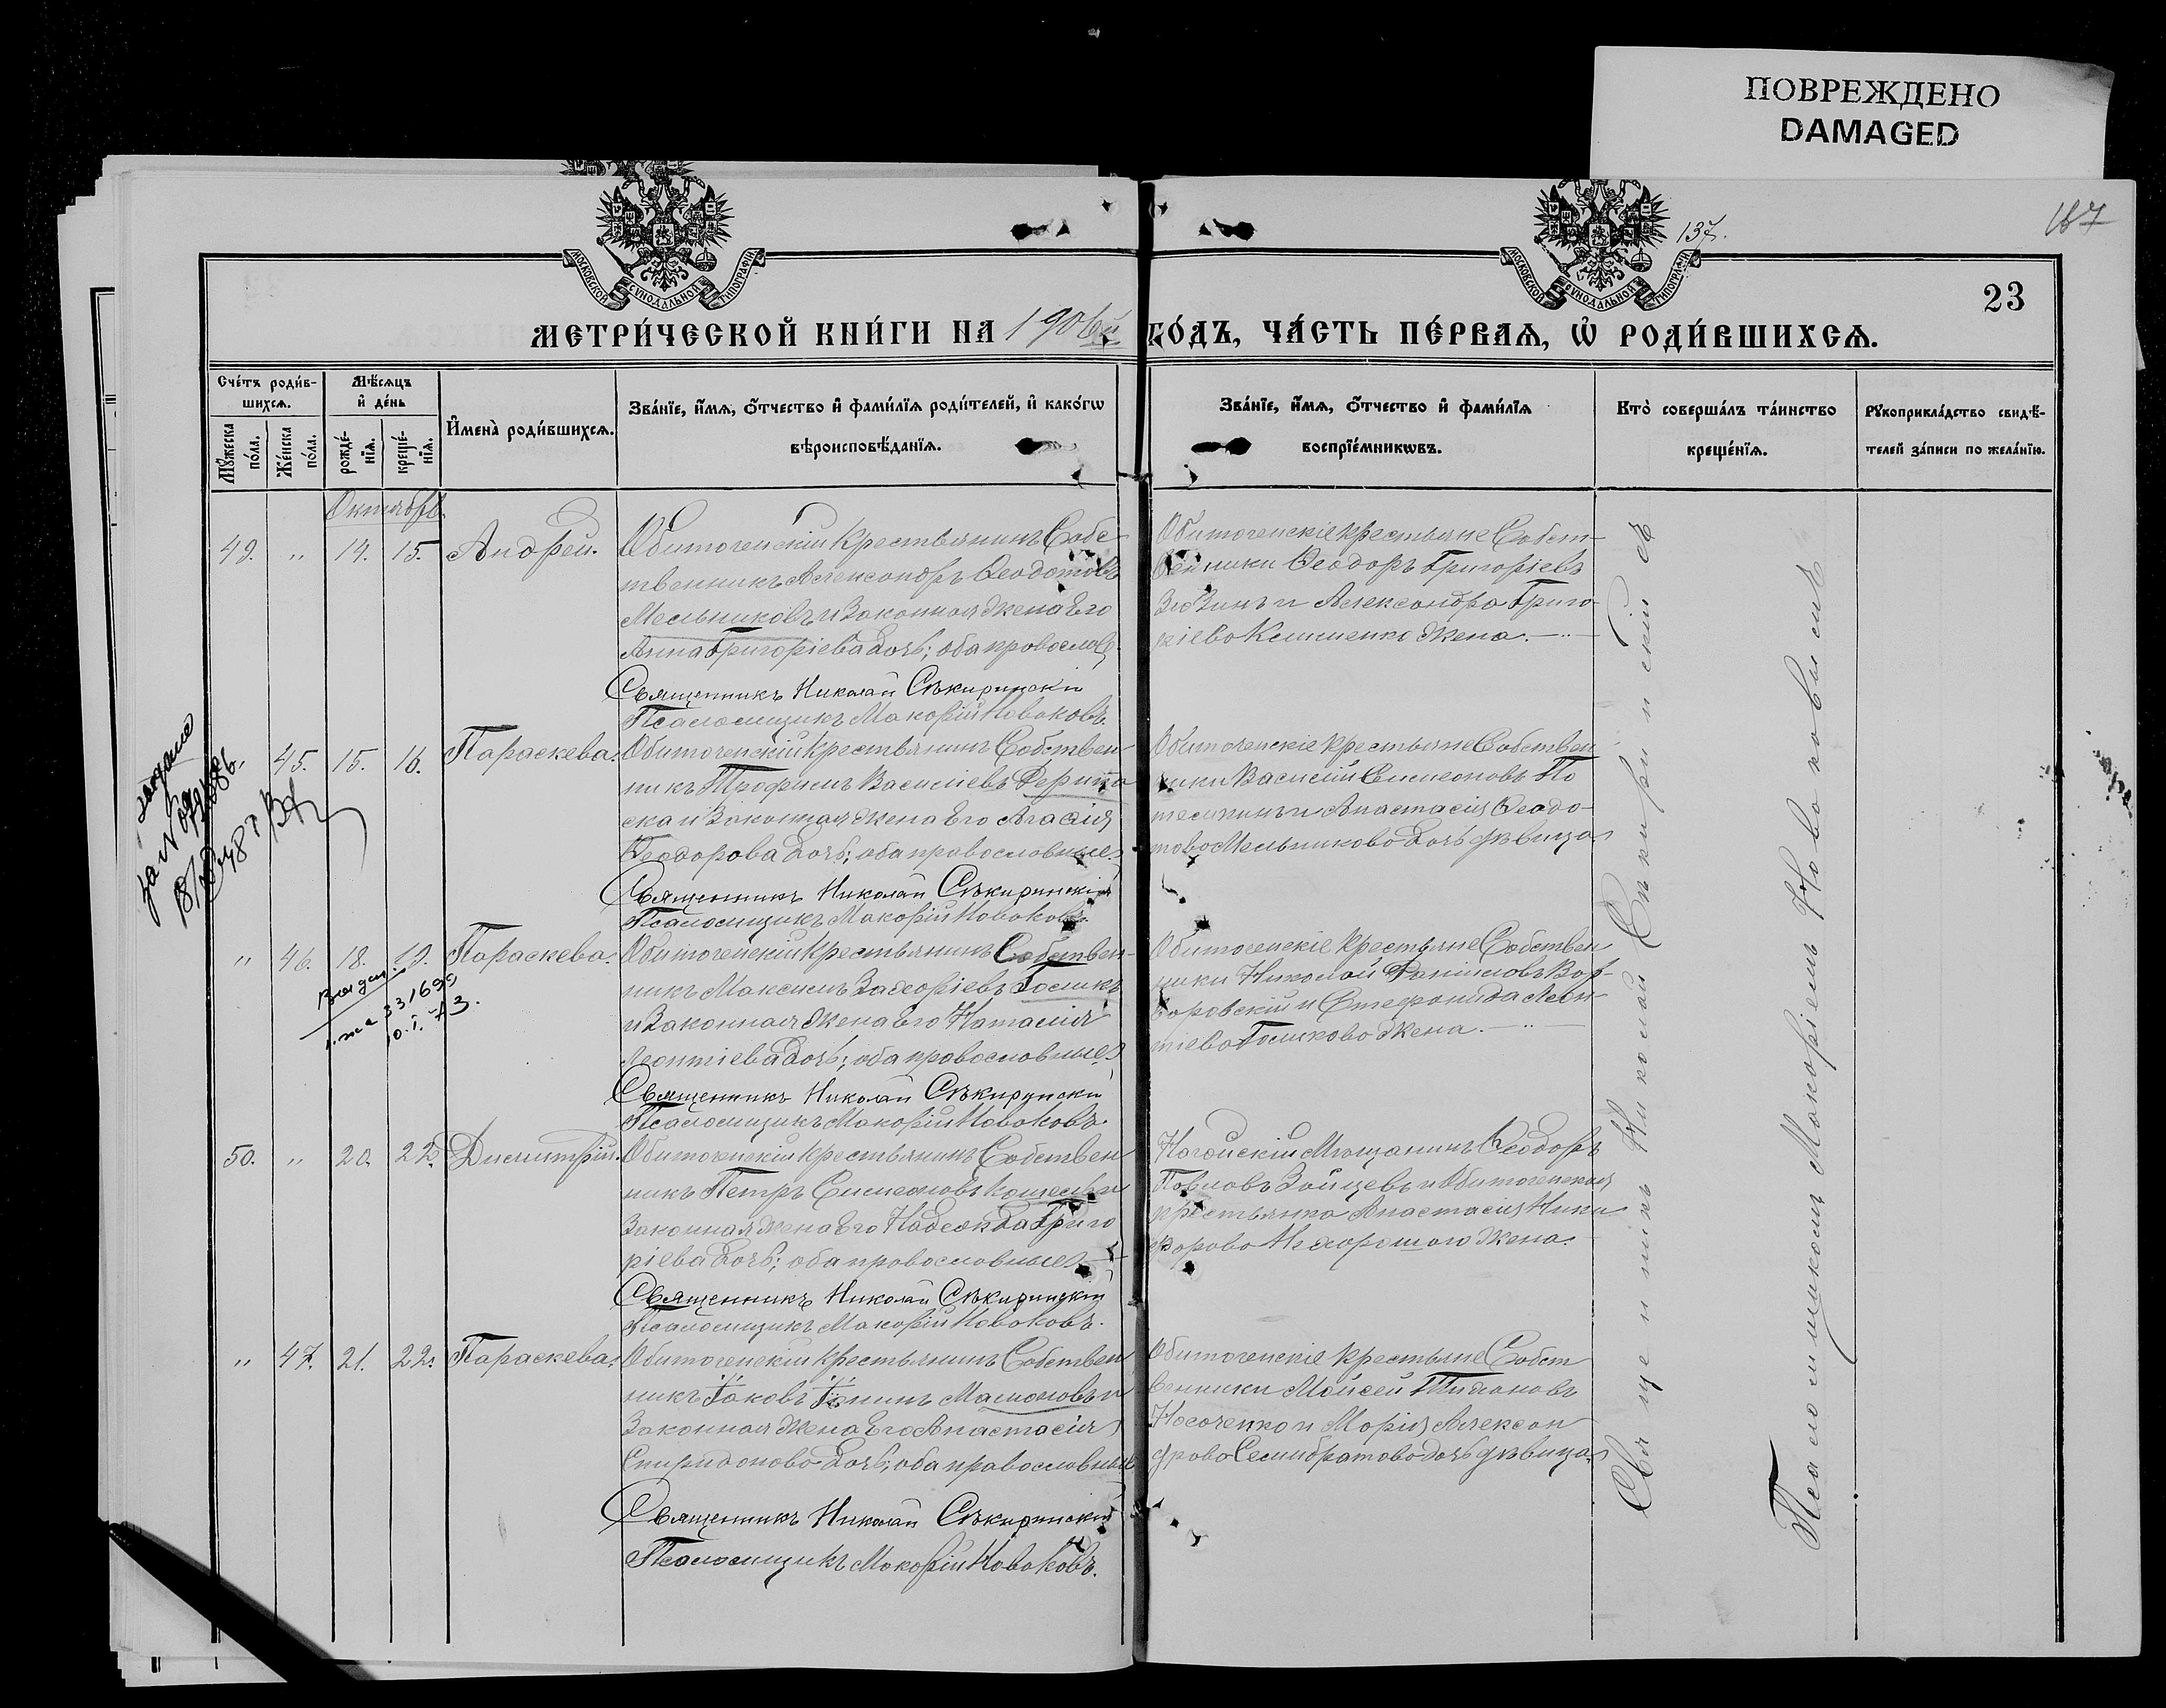 ПОВРЕЖДЕНО
DAMAGED
МОСКОВСКОЙ СѴНОДАЛЬНОЙ ТИПОГРАФІИ
МОСКОВСКОЙ СѴНОДАЛЬНОЙ ТИПОГРАФІИ
137.
23
МЕТРИ́ЧЕСКОЙ КНИ́ГИ НА 1906й ГО́ДЪ, ЧА́СТЬ ПЕ́РВАѦ, Ѽ РОДИ́ВШИХСѦ.
Сче́тъ роди́в-
шихсѧ.
Мꙋ́жеска по́ла.
Же́нска по́ла.
Мѣ́сѧцъ
и҆ де́нь
рожде́-
нїѧ.
креще́-
нїѧ.
И҆мена̀ роди́вшихсѧ.
Зва́нїе, и҆́мѧ, ѻ҆́тчество и҆ фами́лїѧ роди́телей, и҆ како́гѡ
вѣроисповѣ́данїѧ.
Зва́нїе, и҆́мѧ, ѻ҆́тчество и҆ фами́лїѧ
воспрїе́мникѡвъ.
Кто̀ соверша́лъ та́инство
креще́нїѧ.
Рꙋкоприкла́дство свидѣ́-
телей за́писи по жела́нїю.
Октябрь.
49. " 14. 15. Андрей.
Обиточенскій крестьянинъ Собс-
твенникъ Александръ Ѳеодотовъ
Мельниковъ и Законная жена Его
Анна Григоріева дочь; оба православ.
Священникъ Николай Сѣкиринскій
Псаломщикъ Макарій Новаковъ.
Обиточенскіе крестьяне Собст-
венники Ѳеодоръ Григоріевъ
и Александра Григо-
ріева Клименко жена.
45. 15. 16. Параскева.
Обиточенскій крестьянинъ Собствен-
никъ Трофимъ Василіевъ
ска и Законная жена Его Агафія
Ѳеодорова дочь; оба православные.
Священникъ Николай Сѣкиринскій
Псаломщикъ Макарій Новаковъ.
Обиточенскіе крестьяне Собствен-
ники Василій Симеоновъ По
темкинъ и Анастасія Ѳеодо-
това Мельникова дочь дѣвица.
" 46. 18. 19. Параскева.
Обиточенскій крестьянинъ Собствен-
никъ Максимъ Захаріевъ Голикъ
и Законная жена Его Наталія
Леонтіева дочь; оба православные.
Священникъ Николай Сѣкиринскій
Псаломщикъ Макарій Новаковъ.
Обиточенскіе крестьяне Собствен-
ники Николай Даніиловъ Вор-
воровскій и Стефанида Леон-
тіева Голикова жена.
331699
10.I.73.
50. " 20. 22. Димитрій.
Обиточенскій крестьянинъ Собствен-
никъ Петръ Симеоновъ и
Законная жена Его Надежда Григо
ріева дочь; оба православные.
Священникъ Николай Сѣкиринскій
Псаломщикъ Макарій Новаковъ.
Ногайскій Мѣщанинъ Ѳеодоръ
Павловъ Зайцевъ и Обиточенская
крестьянка Анастасія Ники
форова Нехорошаго жена.
" 47. 21. 22. Параскева.
Обиточенскій крестьянинъ Собствен
никъ Іаковъ Мамоновъ и
Законная жена Его Анастасія
Спиридонова дочь; оба православные
Священникъ Николай Сѣкиринскій
Псаломщикъ Макарій Новаковъ.
Обиточенскіе крестьяне Собст
венники Моисей Тихоновъ
Носаченко и Марія Алексан
дрова Семибратова дочь дѣвица.
Священникъ Николай Сѣкиринскій съ
Псаломщикомъ Макаріемъ Новаковымъ